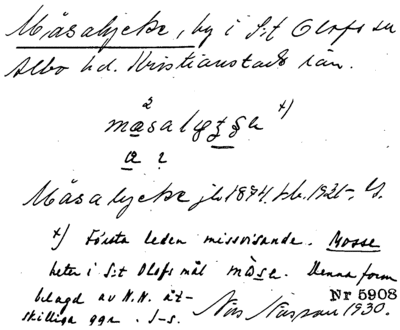 Måsalycke, by i S:t Olofs sn
Albo hd. Kristianstads län.
2
masalyʒʒə x)
a ɿ
Måsalycke jb 1874. tb. 1921-.
x) Första leden missvisande. Mosse
heter i S:t Olofs mål måsə. Denna form
belagd av N.N. åt-
skilliga ggr. I-s.
Nr 5908
Nils 1930.